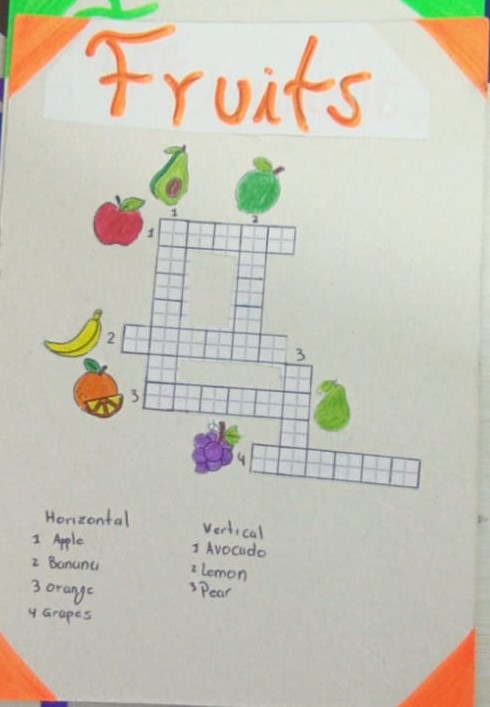 Fruits
1 2
1
2
3
3
4
Horizontal
1 Apple
2 Banana
3 orange
4 Grapes
Vertical
1 Avocado
2 Lemon
3 Pear